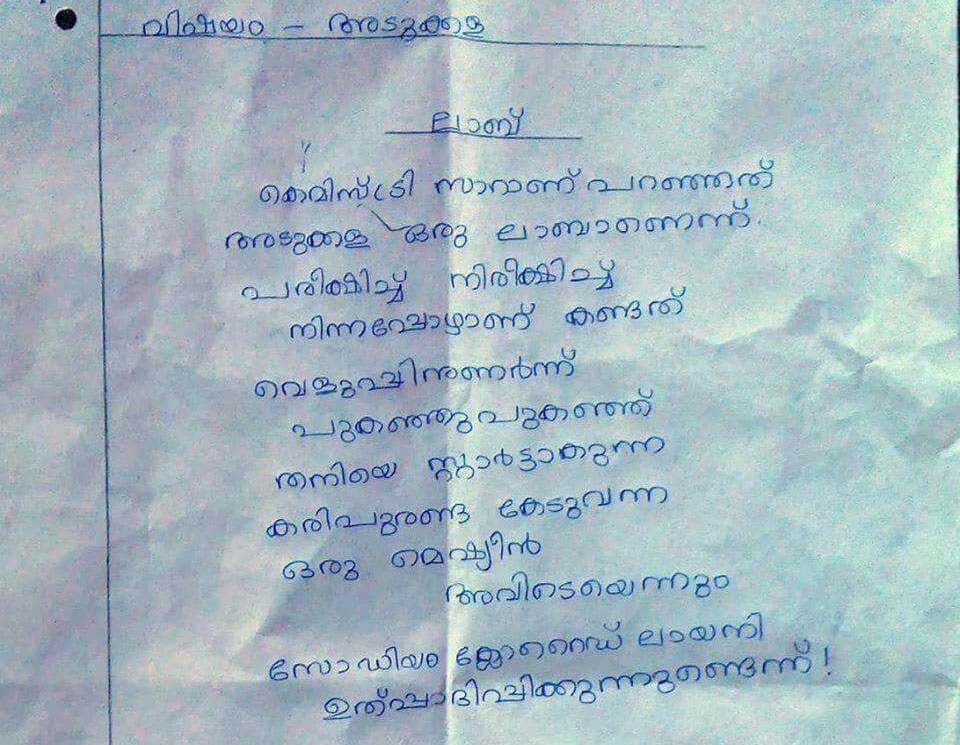 വിഷയം - അടുക്കള
ലാബ്
കെമിസ്ട്രി സാറാണ് പറഞ്ഞത്
അടുക്കള ഒരു ലാബാണെന്ന്.
പരീക്ഷിച്ച് നിരീക്ഷിച്ച്
നിന്നപ്പോഴാണ് കണ്ടത്
വെളുപ്പിനുണർന്ന്
പുകഞ്ഞുപുകഞ്ഞ്
തനിയെ സ്റ്റാർട്ടാകുന്ന
കരിപുരണ്ട കേടുവന്ന
ഒരു മെഷ്യീൻ
അവിടെയെന്നും
സോഡിയം ക്ലോറൈഡ് ലായനി
ഉത്പ്പാദിപ്പിക്കുന്നുണ്ടെന്ന്!